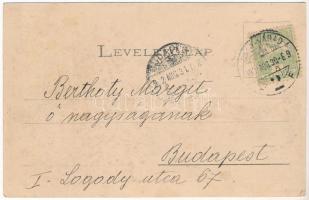 LEVELEZŐ-LAP
Berthoty Margit
ő nagyságának
Budapest
I. Logody utca 67.